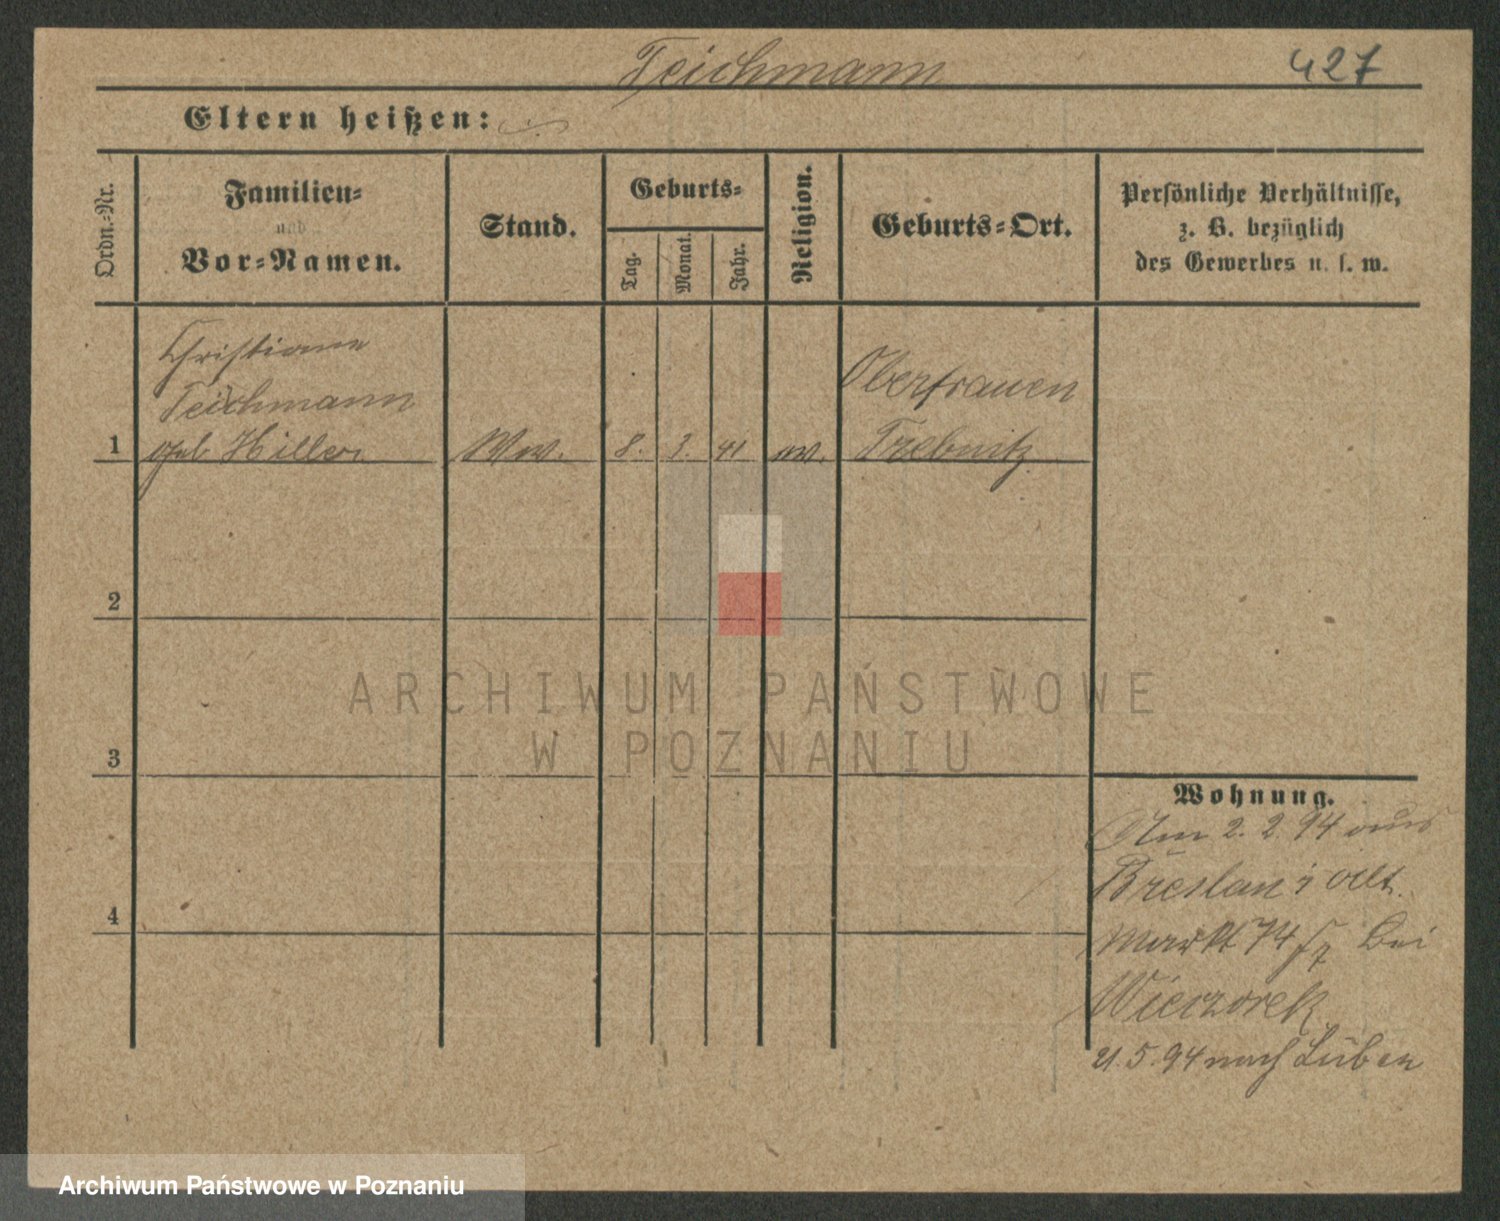 Teichmann
427
Eltern heißen:
Ordn.-Nr.
Familien-
und
Vor-Namen.
Stand.
Geburts-
Tag.
Monat.
Jahr.
Religion.
Geburts-Ort.
Persönliche Verhältnisse,
z. B. bezüglich
des Gewerbes u. s. w.
Christiane
Teichmann
1 geb. Hiller Ww. 8. 41 ev.
Oberfrauen
Trebnitz
2
3
4
Wohnung.
Am 2. 2. 94 aus
Breslau Alt.
Markt 74 bei
Wieczorek
21. 5. 94 nach Lüben
ARCHIWUM PAŃSTWOWE
W POZNANIU
Archiwum Państwowe w Poznaniu